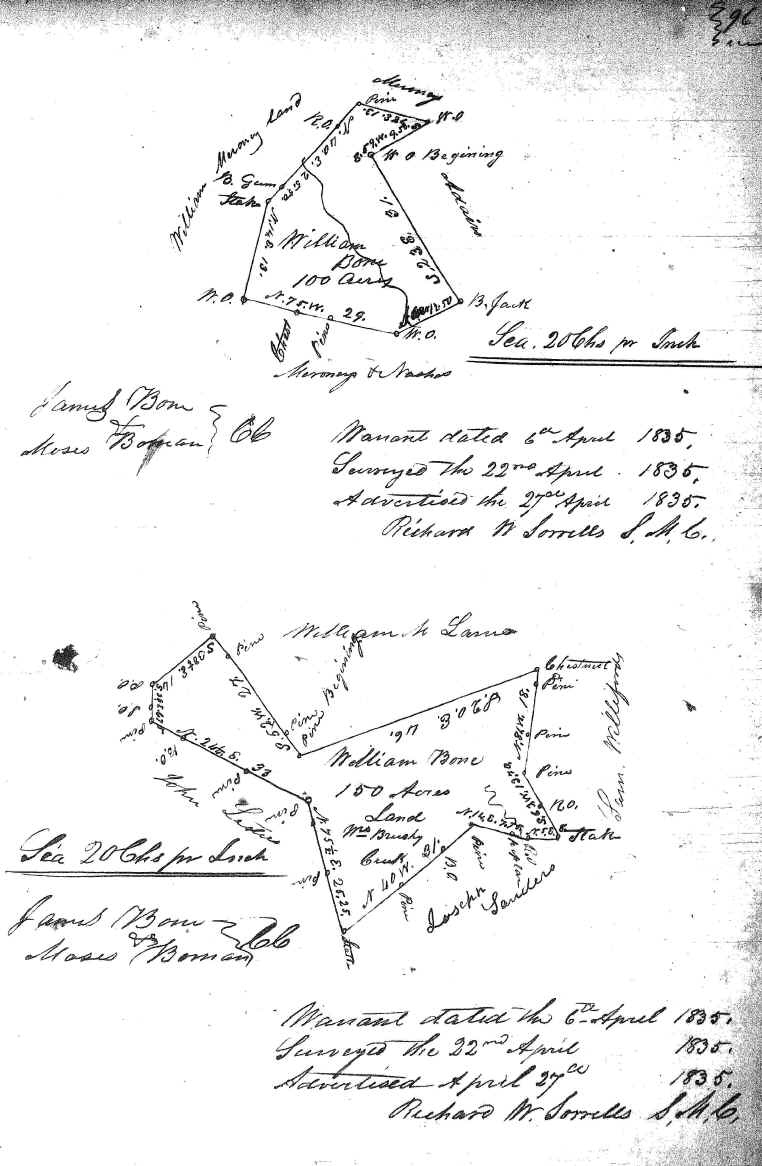 96
Meroney
Pine
W.O
R.O.
William Meroney Land
W O Begining
Adair
B. Gum
Stake
N. 40 E.
S. 59. W. 9.50.
S 23 E 31.
N. 14 E. 19.
William
Bone
100 Acres
W.O.
N. 75. W. 29.
B. Jack
W.O.
Chest
Pine
Meroneys & Nashes
Sca. 20 Chs pr Inch
James Bone
& Moses Boman } CC
Warrant dated 6th April 1835,
Surveyed the 22nd April 1835,
Advertised the 27th April 1835.
Richard W Sorrells S. M. C.
Pine
Pine
William M Lane
Begining
Pine
Pine
Chestnut
Pine
Pine
Pine
R.O.
Stake
Sam. Willifords
R.O.
Pine
B.O.
John
Pine
Pine
S. 52 W 27.
William Bone
150 Acres
Land
Wrs Brushy
Creek
N. 75 E. 25,25.
N 40 W. 31.
Pine
Pine
B.O
Pine
Poplar
Joseph Sanders
Sca 20 Chs pr Inch
James Bone
& Moses Boman } CC
Warrant dated the 6th April 1835.
Surveyed the 22nd April 1835.
Advertised April 27th 1835.
Richard W. Sorrells S. M. C.